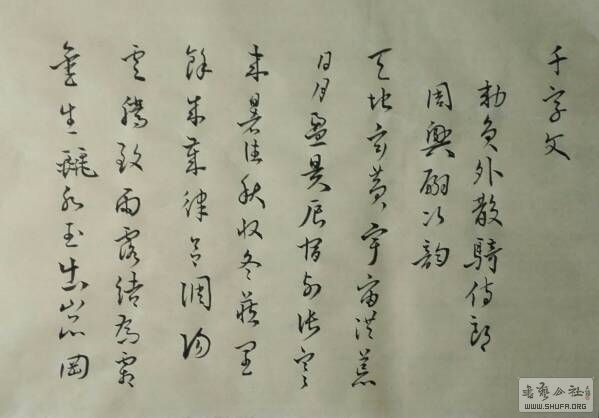 千字文
勅員外散騎侍郎
周興嗣次韵
天地玄黄宇宙洪荒
日月盈昃辰宿列張寒
来暑往秋收冬藏閏
餘成歲律呂調陽
雲騰致雨露結為霜
金生麗水玉出崑岡
書藝公社
WWW.SHUFA.ORG